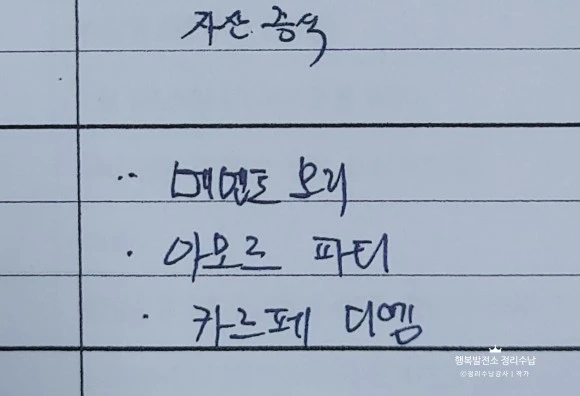 자산 증식
·· 메멘토 모리
· 아모르 파티
· 카르페 디엠
행복발전소 정리수납
ⓒ정리수납강사 | 작가